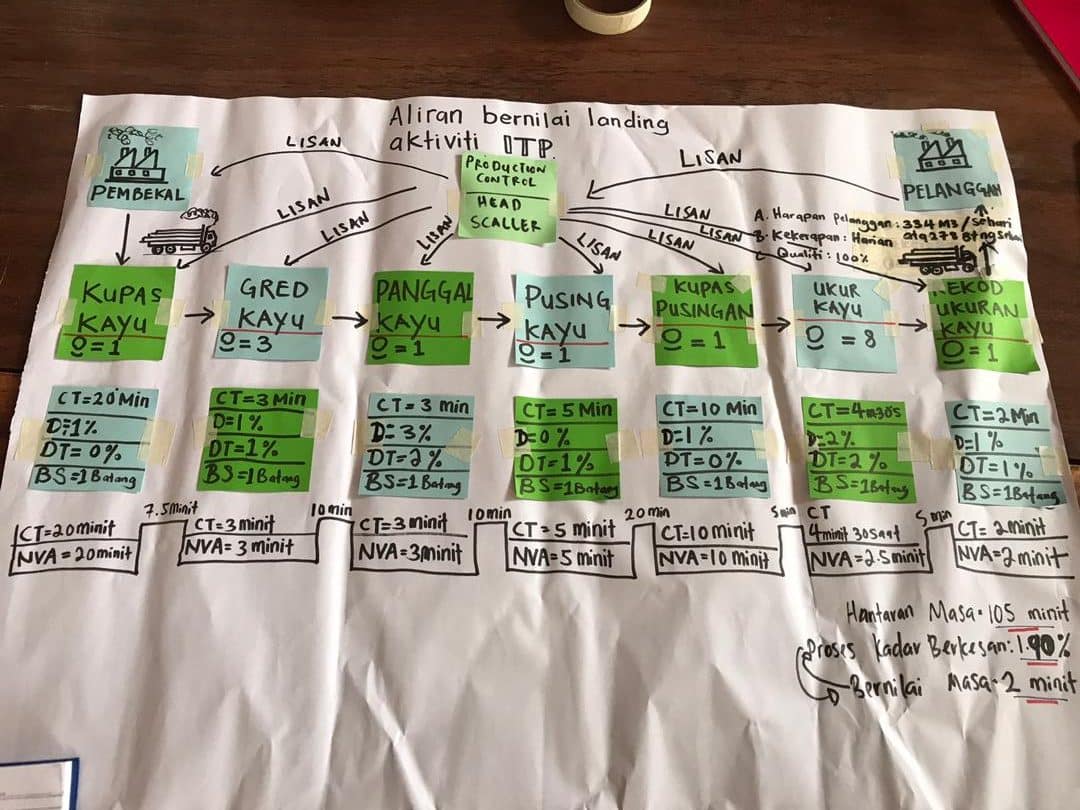 Aliran bernilai landing
aktiviti ITP
PEMBEKAL
LISAN
PRODUCTION
CONTROL
HEAD
SCALLER
LISAN
PELANGGAN
LISAN
LISAN
LISAN
LISAN
LISAN
LISAN
LISAN
A. Harapan Pelanggan: 334 M3/Sehari
B. Kekerapan: Harian
Qualiti: 100%
KUPAS
KAYU
O=1
GRED
KAYU
O=3
PANGGAL
KAYU
O=1
PUSING
KAYU
O=1
KUPAS
PUSINGAN
O=1
UKUR
KAYU
O=8
REKOD
UKURAN
KAYU
O=1
CT=20 Min
D=1%
DT=0%
BS=1 Batang
CT=3 Min
D=1%
DT=1%
BS=1 Batang
CT=3 min
D=3%
DT=2%
BS=1 Batang
CT=5 Min
D=0%
DT=1%
BS=1 Batang
CT=10 Min
D=1%
DT=0%
BS=1 Batang
CT=4m30s
D=2%
DT=2%
BS=1 Batang
CT=2 Min
D=1%
DT=1%
BS=1 Batang
7.5 minit
10 min
10 min
20 min
5 min
5 min
CT=20 minit
NVA=20 minit
CT=3 minit
NVA=3 minit
CT=3 minit
NVA=3 minit
CT=5 minit
NVA=5 minit
CT=10 minit
NVA=10 minit
CT
4 minit 30 saat
NVA=2.5 minit
CT=2 minit
NVA=2 minit
Hantaran Masa=105 minit
Proses Kadar Berkesan: 1.90%
Bernilai Masa=2 minit